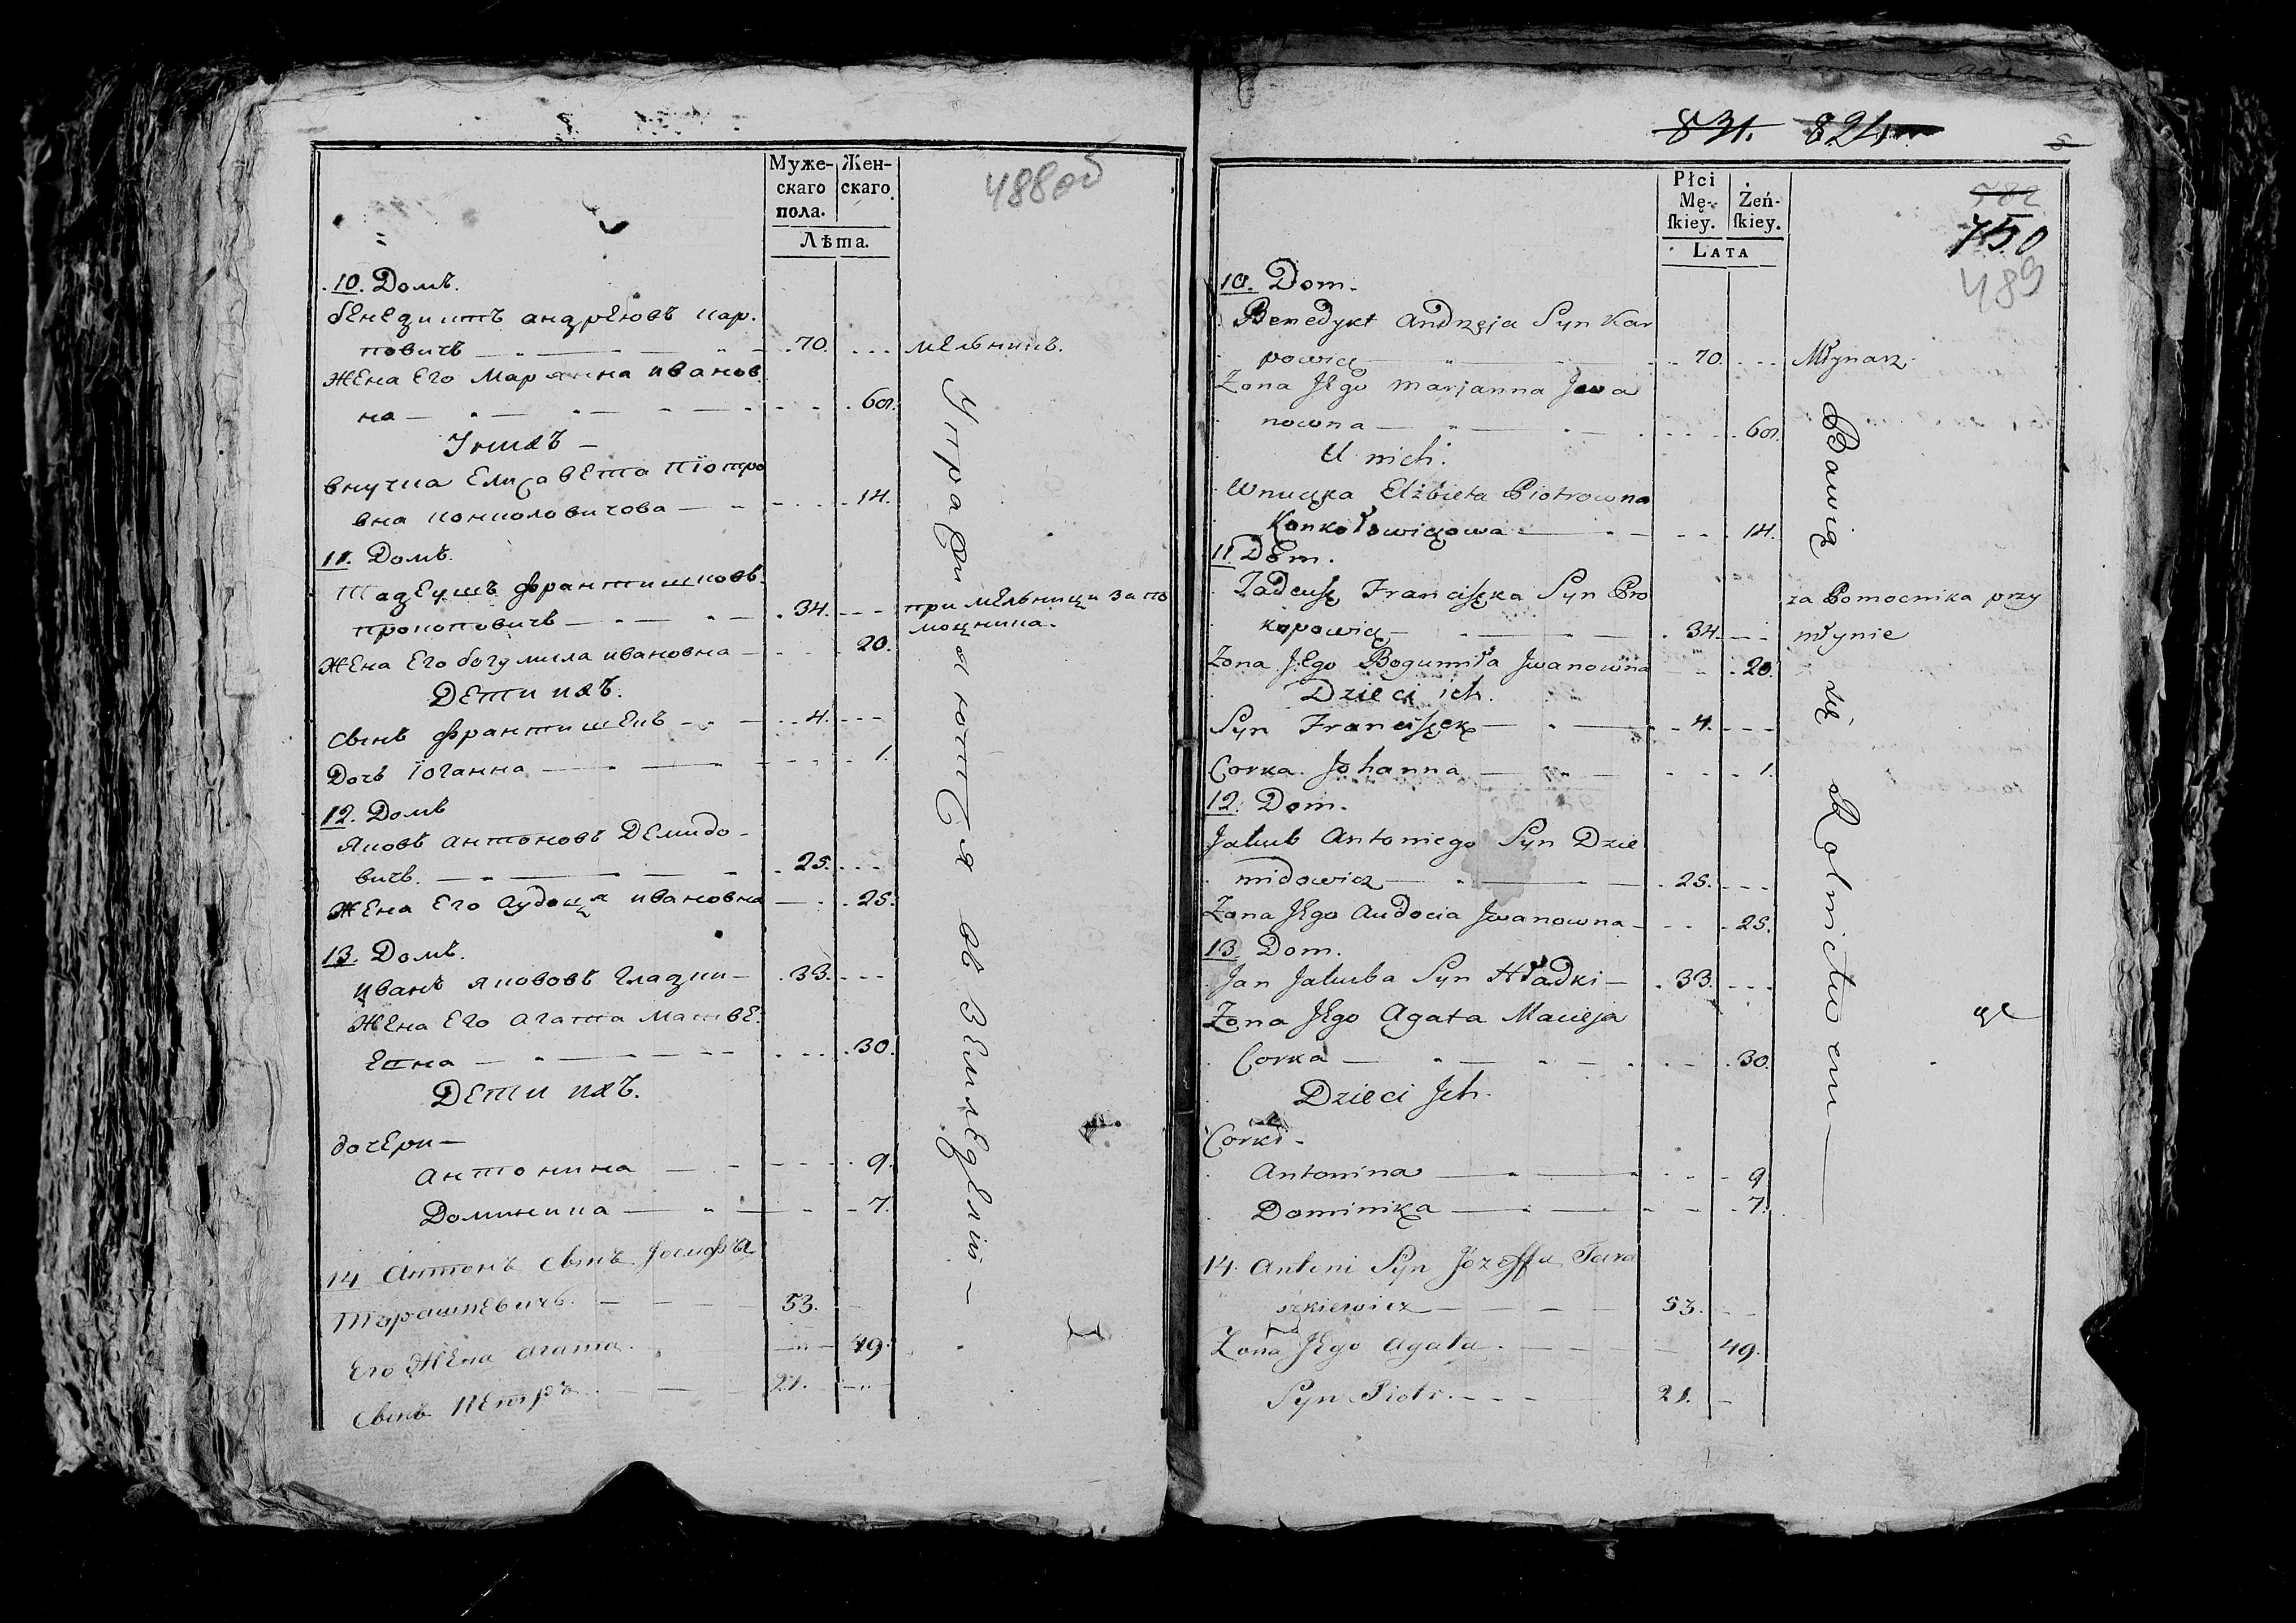 Муже-
скаго
пола.
Жен-
скаго.
Лѣта.
488об
10. Домъ.
бенедиктъ андреювъ кар.
повичъ 70. мельникъ.
Жена Его Марянна иванов
на 60.
У нихъ
внучка Елизавета піотро
вна конколовичова 14.
11. Домъ.
Тадеушъ франтишковъ
прокоповичъ 34. при мельници за по
мощника.
Жена Его богумила ивановна 20.
Дети ихъ.
сынъ франтишекъ 4.
Дочь іоганна 1.
12. Домъ
Яковъ антоновъ Демидо-
вичъ. 25.
Жена Его аудоця ивановна 25.
13. Домъ.
иванъ якововъ гладки 33.
Жена Его агата матве.
евна 30.
Дети ихъ.
дочери
антонина 9.
Доминика 7.
14 антонъ сынъ Іосифа
Тарашкевичъ. 53.
Его Жена агата. 49.
сынъ Петръ 21.
Упражняются въ земледелии
831. 824
Płci
Mę-
skiey.
Żeń-
skiey.
LATA
750
489
10. Dom.
Benedykt Andrzeja Syn Kar
powicz 70. Młynarz
Żona Jego Marjanna Jwa
nowna 60.
U nich.
Wnuczka Elżbieta Piotrowna
Konkołowiczowa 14.
11. Dom.
Tadeusz Franciszka Syn Pro
kopowicz 34. za Pomocnika przy
młynie
Żona Jego Bogumiła Jwanowna 20.
Dzieci ich.
Syn Franciszek 4.
Corka Johanna 1.
12. Dom.
Jakub Antoniego Syn Dzie
midowicz 25.
Żona Jego Audocia Jwanowna 25.
13. Dom.
Jan Jakuba Syn Hładki 33.
Żona Jego Agata Macieja
Corka 30.
Dzieci Jch.
Corki
Antonina 9
Dominika 7.
14. Antoni Syn Józeffa Tara
szkiewicz 53.
Żona Jego Agata. 49.
Syn Piotr. 21.
Bawią się Rolnictwem